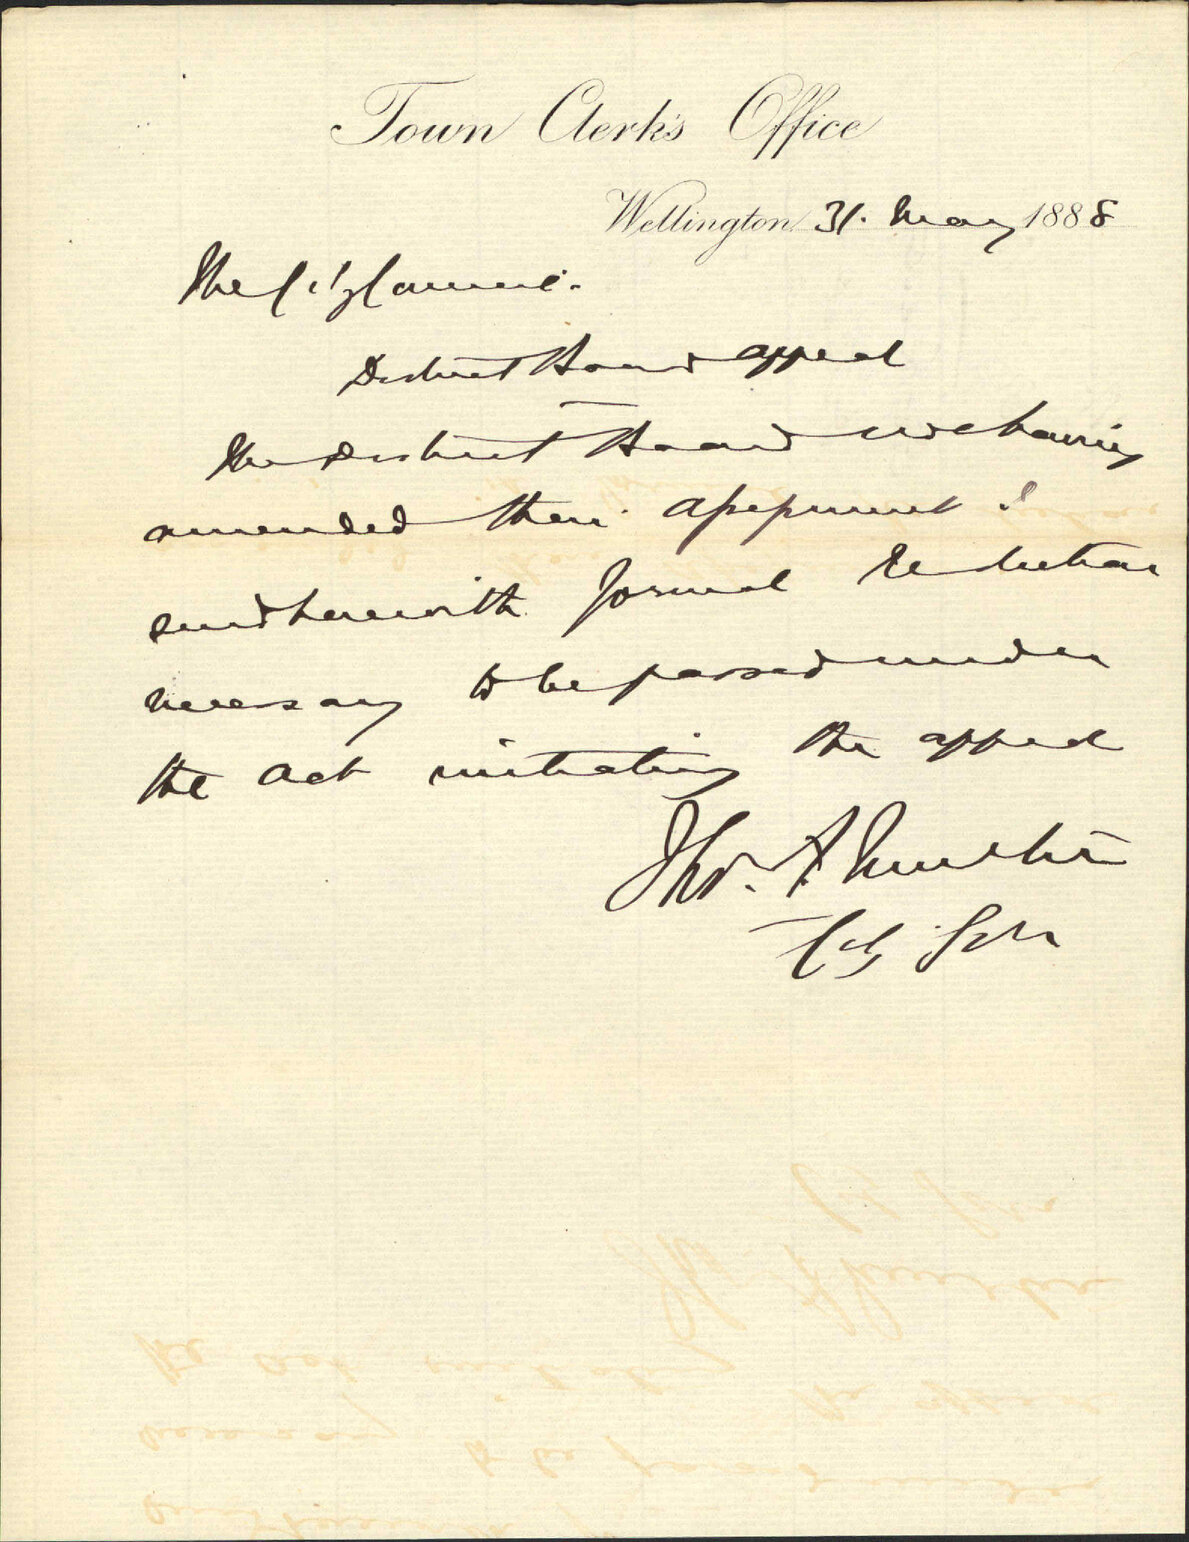 Town Clerk's Office
Wellington 31. May 1888
The City Council.
District Board appeal
The District Board not having
amended their apportionment I
send herewith formal Resolution
necessary to be passed under
the Act initiating the appeal
Thos. F.
City Solr